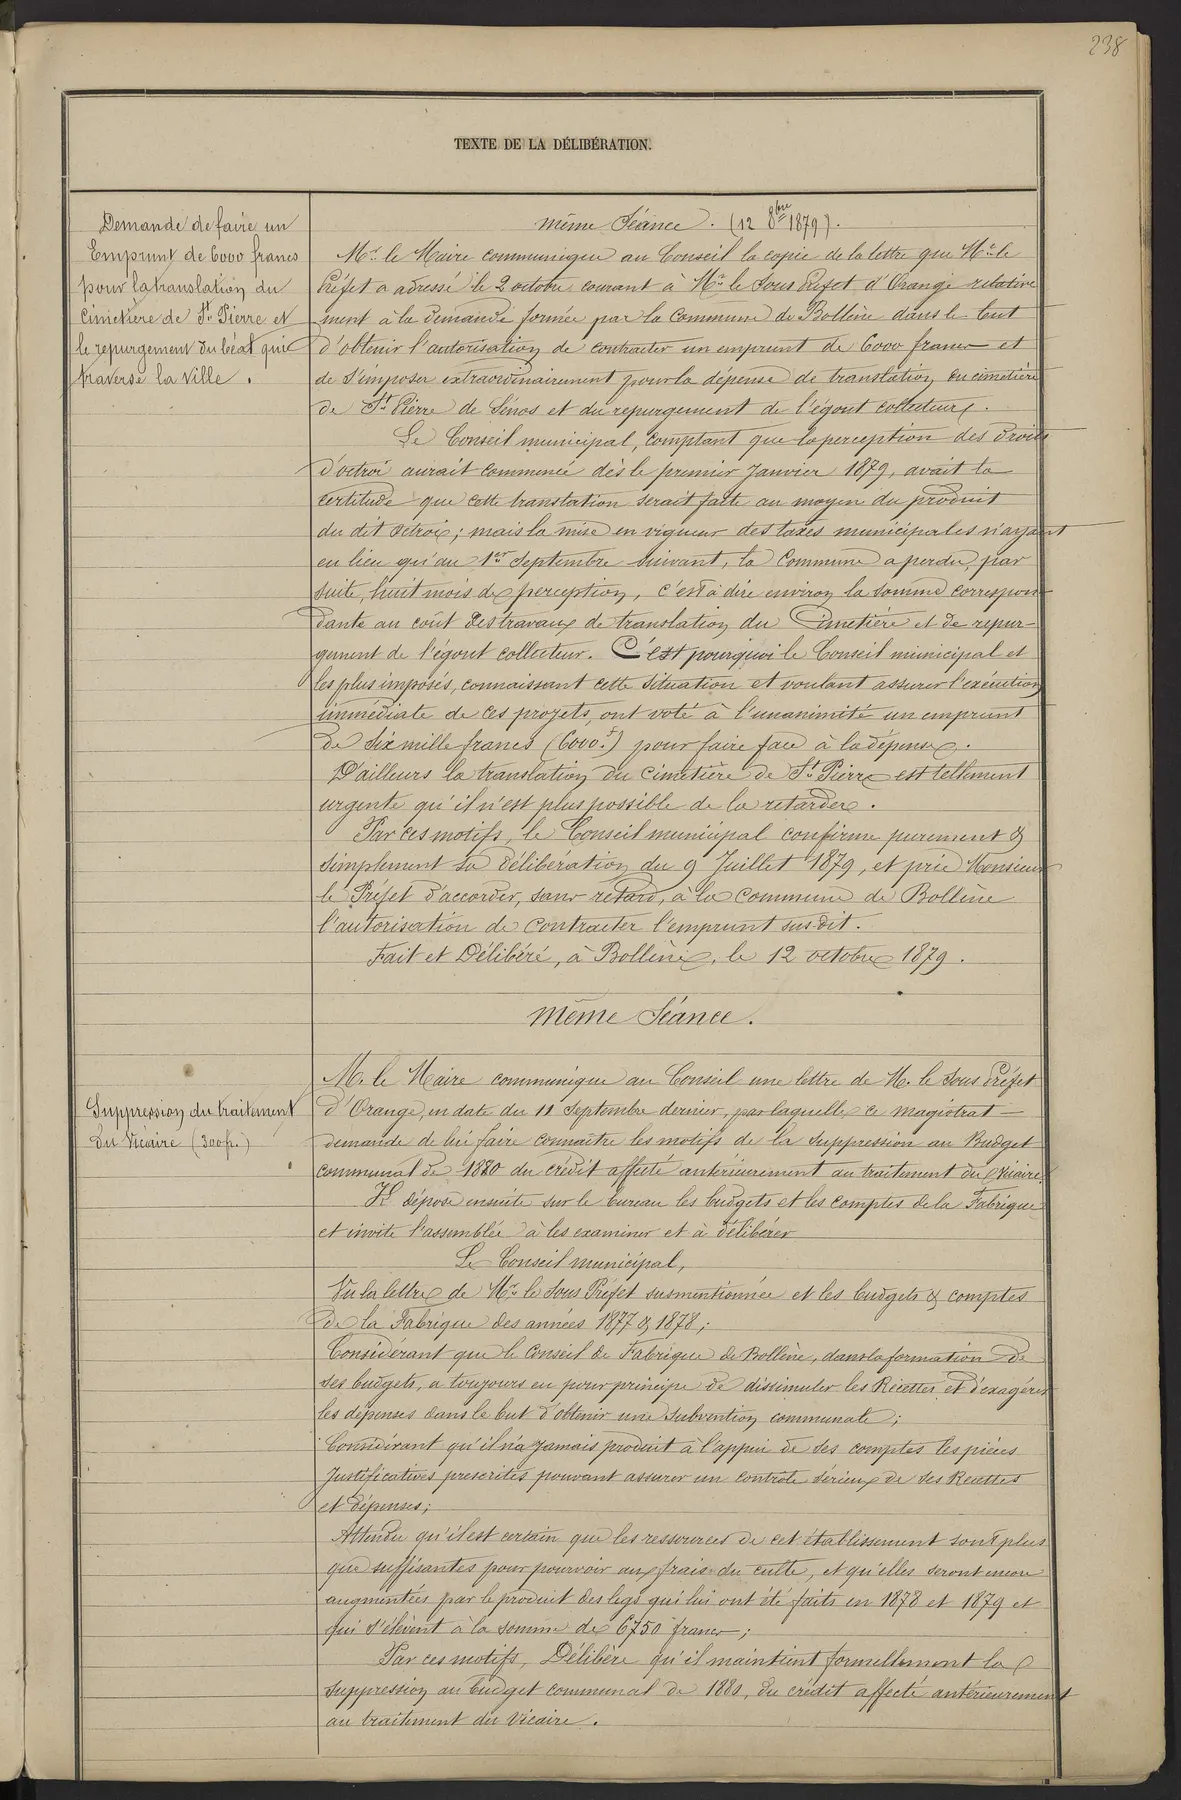 238
TEXTE DE LA DÉLIBÉRATION.
Demande de faire un
Emprunt de 6000 francs
pour la translation du
Cimetière de St. Pierre et
le repurgement du béal qui
traverse la ville.
même Séance. (12 8bre 1879).
Mr. le Maire communique au Conseil la copie de la lettre que Mr. le
Préfet a adressé le 2 octobre courant à Mr. le Sous Préfet d'Orange relative
ment à la demande formée par la Commune de Bollène dans le but
d'obtenir l'autorisation de contracter un emprunt de 6000 francs et
de s'imposer extraordinairement pour la dépense de translation du cimetière
de St. Pierre de Sénos et du repurgement de l'égout collecteur.
Le Conseil municipal, comptant que la perception des Droits
d'octroi aurait commencé dès le premier Janvier 1879, avait la
certitude que cette translation serait faite au moyen du produit
du dit octroi; mais la mise en vigueur des taxes municipales n'ayant
eu lieu qu'au 1er Septembre suivant, la Commune a perdu, par
suite, huit mois de perception, c'est à dire environ la somme correspon
dante au coût des travaux de translation du Cimetière et de repur-
gement de l'égout collecteur. C'est pourquoi le Conseil municipal et
les plus imposés, connaissant cette situation et voulant assurer l'exécution
immédiate de ces projets, ont voté à l'unanimité un emprunt
de Six mille francs (6000 f) pour faire face à la dépense.
D'ailleurs la translation du cimetière de St. Pierre est tellement
urgente qu'il n'est plus possible de la retarder.
Par ces motifs, le Conseil municipal confirme purement &
simplement sa délibération du 9 Juillet 1879, et prie Monsieur
le Préfet d'accorder, sans retard, à la Commune de Bollène
l'autorisation de contracter l'emprunt sus-dit.
Fait et Délibéré, à Bollène, le 12 octobre 1879.
même Séance.
Suppression du traitement
du Vicaire (300 fr.)
M. le Maire communique au Conseil une lettre de M. le Sous Préfet
d'Orange, en date du 11 Septembre dernier, par laquelle ce magistrat
demande de lui faire connaître les motifs de la suppression au Budget
communal de 1880 du crédit affecté antérieurement au traitement du Vicaire.
Il dépose ensuite sur le bureau les budgets et les comptes de la Fabrique
et invite l'assemblée à les examiner et à délibérer
Le Conseil municipal,
Vu la lettre de Mr. le Sous Préfet susmentionnée et les budgets & comptes
de la Fabrique des années 1877 & 1878;
Considérant que le Conseil de Fabrique de Bollène, dans la formation de
ses budgets, a toujours eu pour principe de dissimuler les Recettes et d'exagérer
les dépenses dans le but d'obtenir une subvention communale;
Considérant qu'il n'a jamais produit à l'appui de ses comptes les pièces
Justificatives prescrites pouvant assurer un contrôle sérieux de ses Recettes
et dépenses;
Attendu qu'il est certain que les ressources de cet établissement sont plus
que suffisantes pour pourvoir aux frais du culte, et qu'elles seront encore
augmentées par le produit des legs qui lui ont été faits en 1878 et 1879 et
qui s'élèvent à la somme de 6750 francs;
Par ces motifs, Délibère qu'il maintient formellement la
suppression au budget communal de 1880, du crédit affecté antérieurement
au traitement du Vicaire.